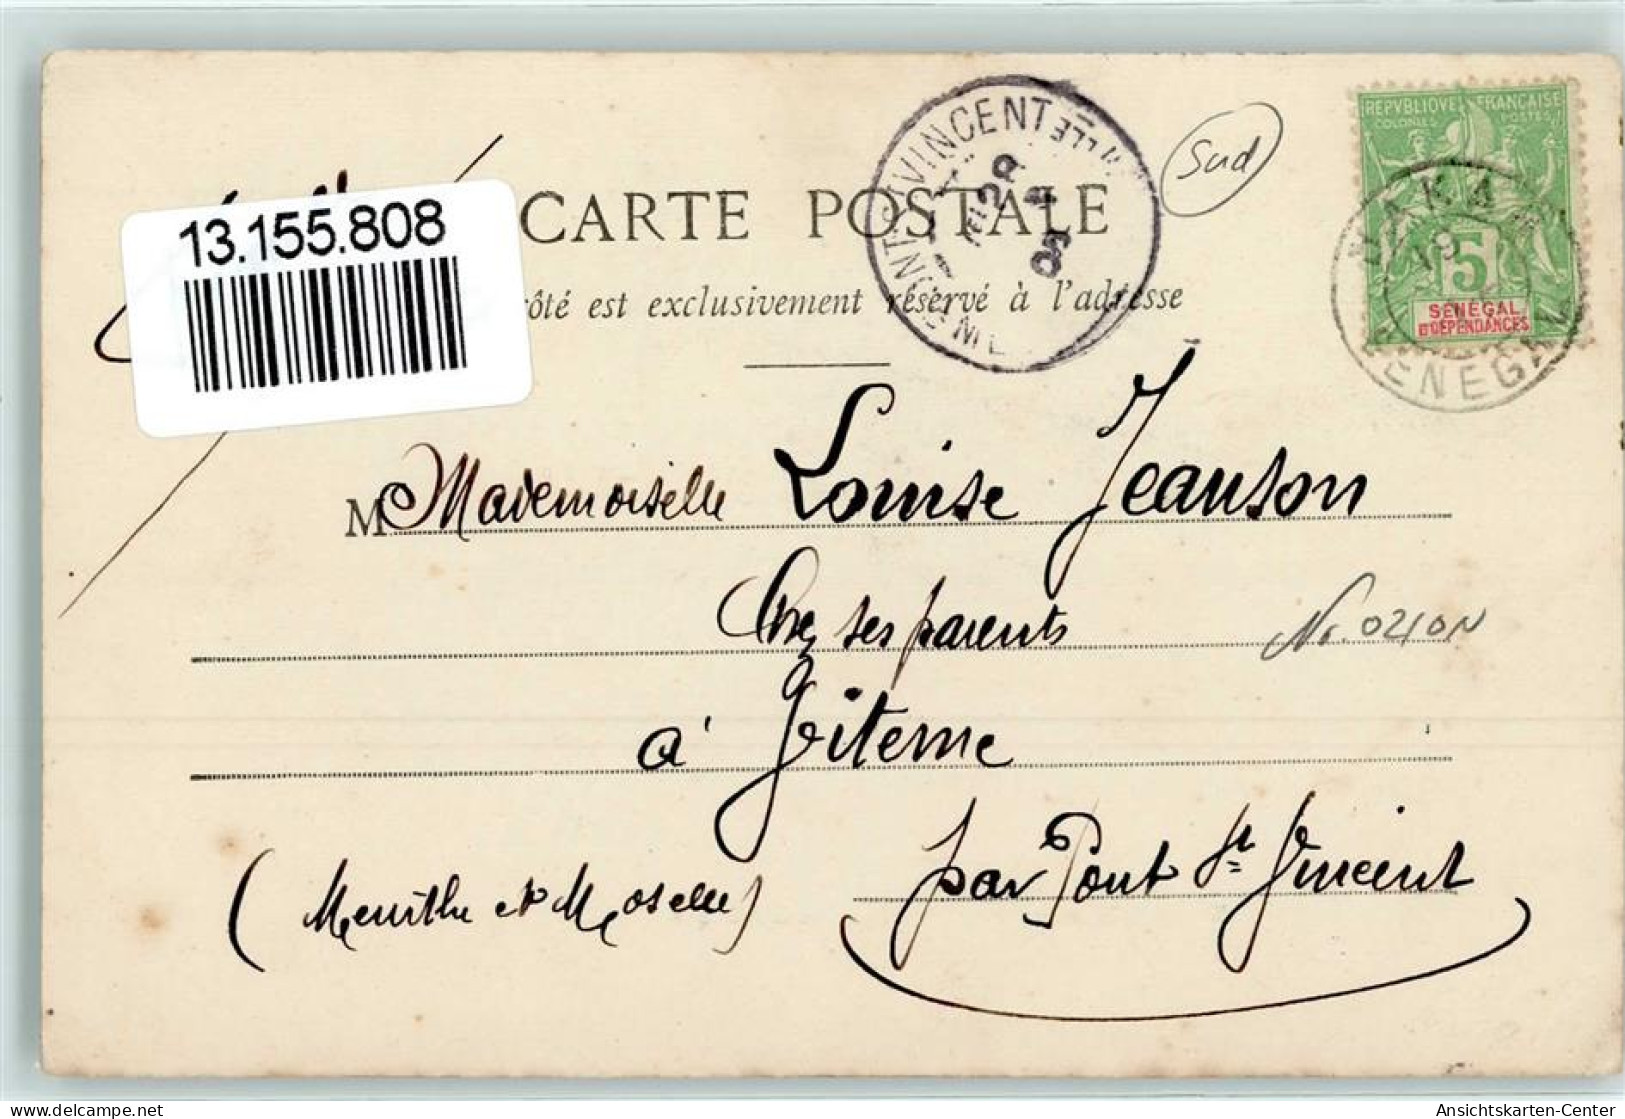 13.155.808
CARTE POSTALE
côté est exclusivement réservé à l'adresse
PONT-ST-VINCENT
05
Sud
REPVBLIQVE FRANÇAISE
COLONIES POSTES
5
SÉNÉGAL
ET DÉPENDANCES
DAKAR
SENEGAL
M Mademoiselle Louise Jeanson
Chez ses parents
à Viterne
par Pont St Vincent
(Meurthe et Moselle)
Ansichtskarten-Center